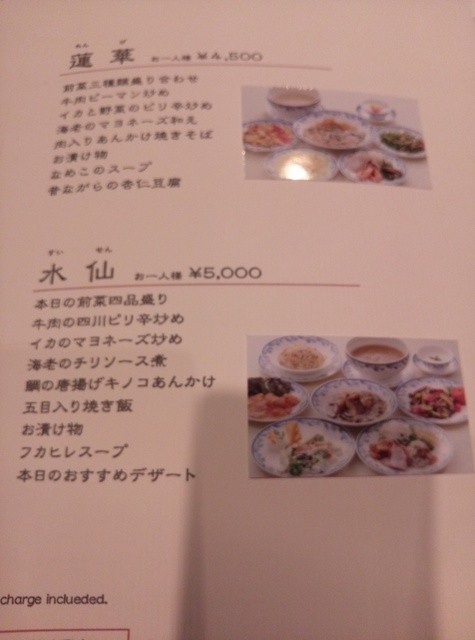 れん げ
蓮華 お一人様 ¥4,500
前菜三種類盛り合わせ
牛肉ピーマン炒め
イカと野菜のピリ辛炒め
海老のマヨネーズ和え
肉入りあんかけ焼きそば
お漬け物
なめこのスープ
昔ながらの杏仁豆腐
すい せん
水仙 お一人様 ¥5,000
本日の前菜四品盛り
牛肉の四川ピリ辛炒め
イカのマヨネーズ炒め
海老のチリソース煮
鯛の唐揚げキノコあんかけ
五目入り焼き飯
お漬け物
フカヒレスープ
本日のおすすめデザート
charge inclueded.